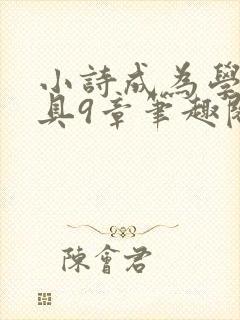 小詩成為學
具9章筆趣閣
陳會君